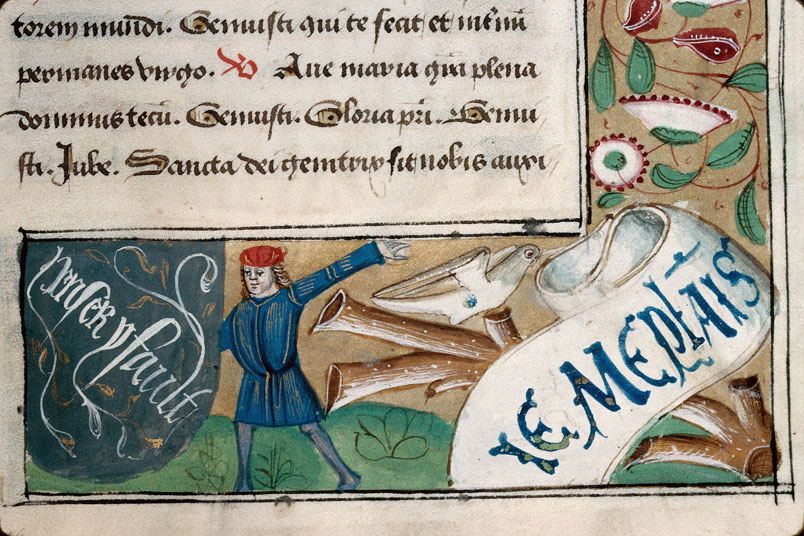 torem mundi. Genuisti qui te fecit et in et̾nū
permanes virgo. Aue maria gr̄a plena
dominus tecū. Genuisti. Gloria pr̄i. Genui
sti. Jube. Sancta dei genitrix sit nobis auxi
penser y fault
JE ME PLAIS